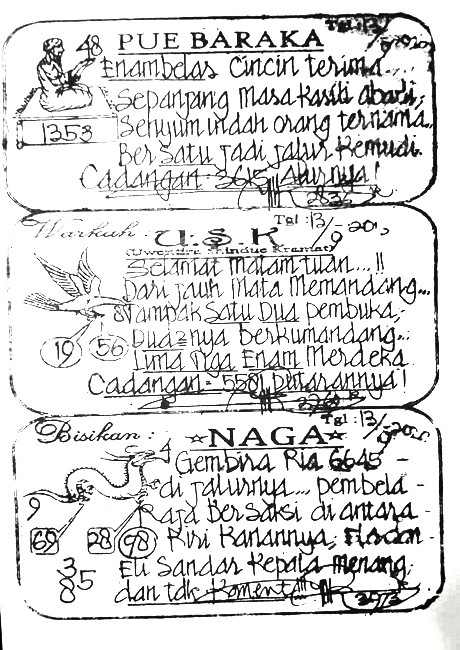 Tgl: 13/9-20
48 PUE BARAKA
Enambelas Cincin terima...
Sepanjang Masa Kasih abadi,
1353
Senyum indah orang ternama..
BerSatu jadi jalur Kemudi.
Cadangan: 3615 Alurnya!
2836
Warkah: U.S.K Tgl: 13/9-20
(Uwendre Shindue Kramat)
Selamat Malam tuan...!!
Dari jauh Mata Memandang...
Tampak Satu Dua pembuka,
Dua2nya berkumandang...
19 56
Lima Tiga Enam Merdeka
Cadangan: 5581 Putarannya!
Tgl: 13/9-20
Bisikan: NAGA
4 Gembira Ria 6645 -
di jalurnya... pembela -
9
Raja BerSaksi di antara -
69 28 98
Kiri Kanannya,
385
Eli Sandar Kepala Menang,
dan tdk Koment!!!